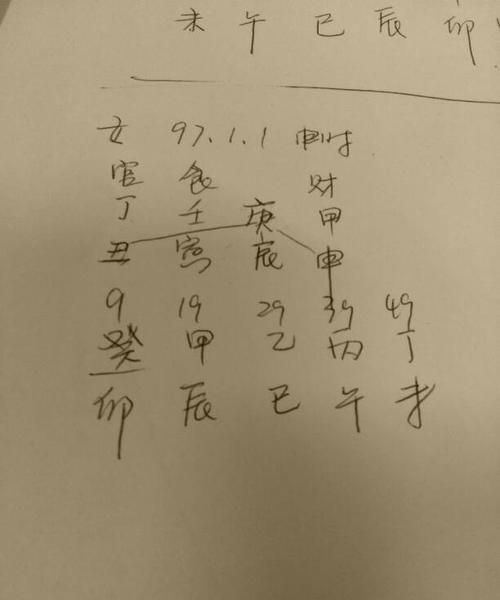 未 午 巳 辰 卯
女 97.1.1 申时
官 食 财
丁 壬 庚 甲
丑 寅 辰 申
9 19 29 39 49
癸 甲 乙 丙 丁
卯 辰 巳 午 未